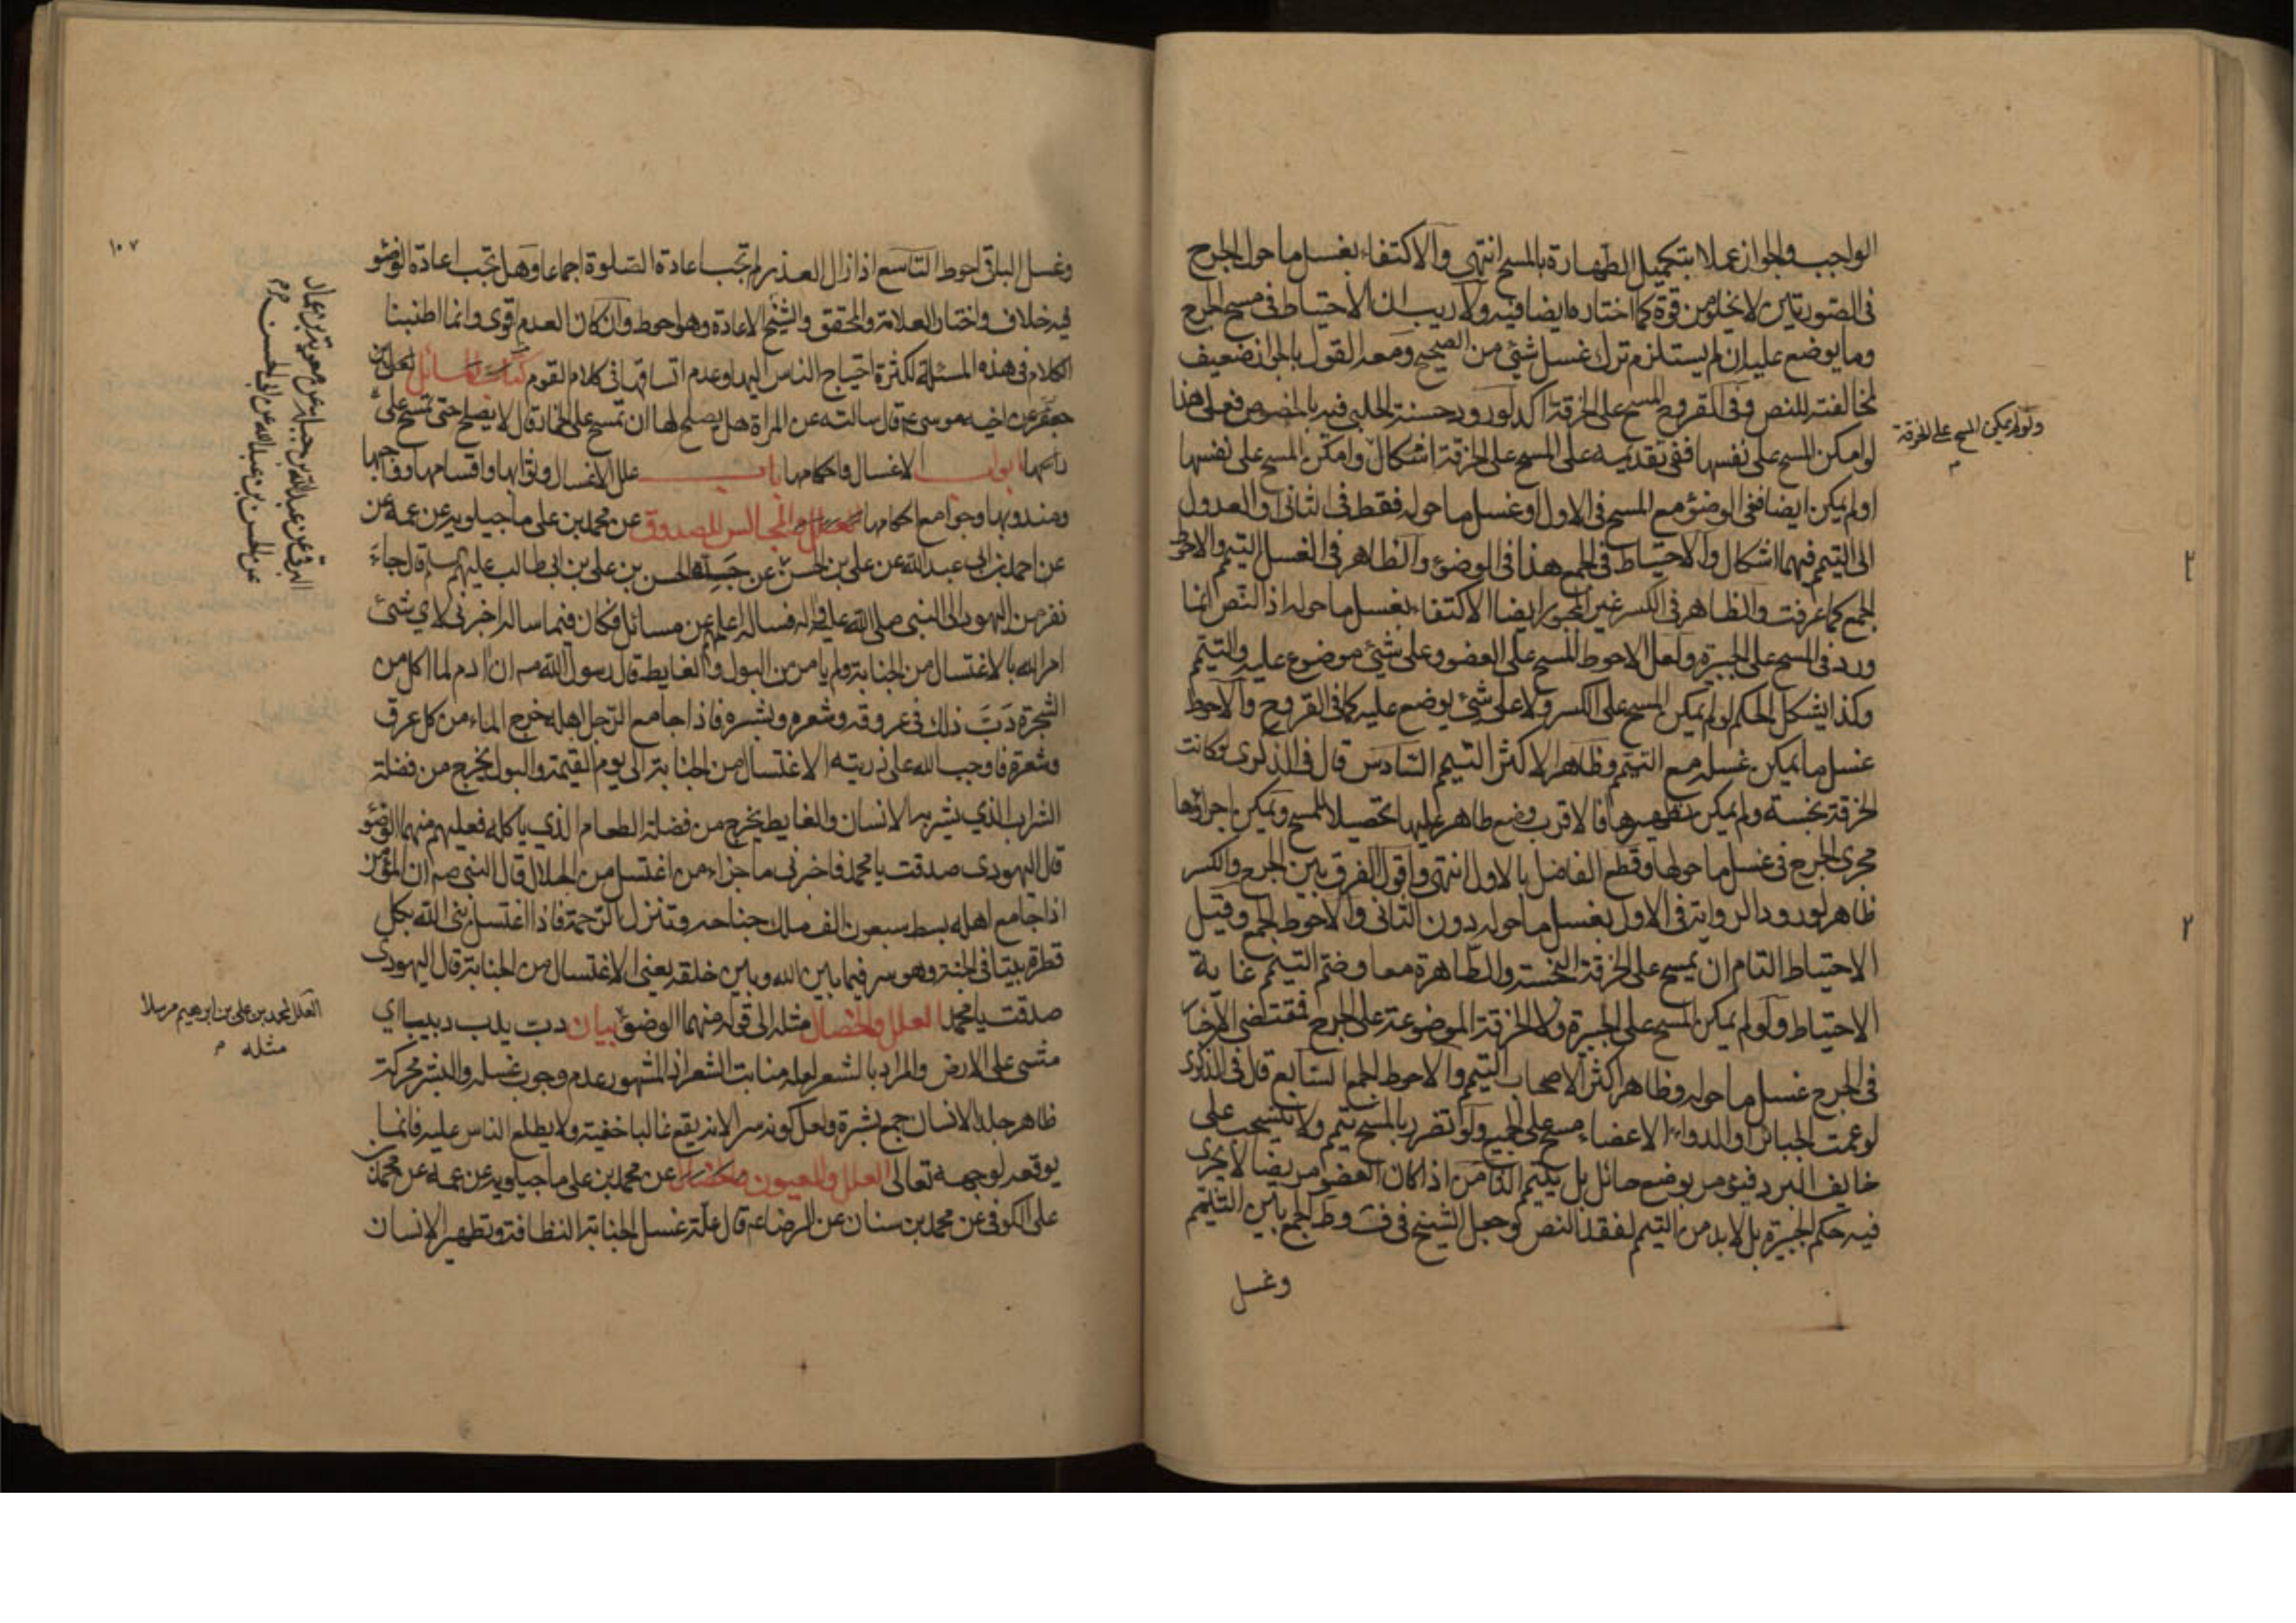 الواجب والجواز عملا بتكميل الطهارة بالمسح انتهى والاكتفاء بغسل ما حول الجرح
فى الصورتين لا يخلو من قوة كما اختاره ايضا فيه ولا ريب ان الاحتياط فى مسح الجرح
وما يوضع عليه ان لم يستلزم ترك غسل شئ من الصحيح ومعه القول بالجواز ضعيف
لمخالفته للنص وفى القروح المسح على الخرقة آكد لورود حسنة الحلبى فيه بالخصوص فعلى هذا
ولو لم يمكن المسح على الخرقة
م
لو امكن المسح على نفسها ففى تقديمه على المسح على الخرقة اشكال وامكن المسح على نفسها
او لم يمكن ايضا ففى الوضوء مع المسح فى الاول او غسل ما حوله فقط فى الثانى والعدول
الى التيمم فيهما اشكال والاحتياط فى الجمع هذا فى الوضوء والظاهر فى الغسل التيمم والاحوط
الجمع كما عرفت والظاهر فى الكسر غير المجبور ايضا الاكتفاء بغسل ما حوله اذ النص انما
ورد فى المسح على الجبيرة ولعل الاحوط المسح على العضو وعلى شئ موضوع عليه والتيمم
وكذا يشكل الحكم لو لم يمكن المسح على الكسر ولا على شئ يوضع عليه كما فى القروح والاحوط
غسل ما يمكن غسله مع التيمم وظاهر الاكثر التيمم السادس قال فى الذكرى لو كانت
الخرقة نجسة ولم يمكن تطهيرها فالاقرب وضع طاهر عليها تحصيلا للمسح ويمكن اجراؤها
مجرى الجرح فى غسل ما حولها وقطع الفاضل بالاول انتهى واقول الفرق بين الجرح والكسر
ظاهر لورود الرواية فى الاول بغسل ما حوله دون الثانى والاحوط الجمع وقيل
الاحتياط التام ان يمسح على الخرقة النجسة والطاهرة معا وضم التيمم غاية
الاحتياط ولو لم يمكن المسح على الجبيرة ولا الخرقة الموضوعة على الجرح فمقتضى الاخبار
فى الجرح غسل ما حوله وظاهر اكثر الاصحاب التيمم والاحوط الجمع السابع قال فى الذكرى
لو عمت الجبائر او الدواء الاعضاء مسح على الجميع ولو تضرر بالمسح تيمم ولا ينسحب على
خايف البرد فيؤمر بوضع حائل بل يتيمم الثامن اذا كان العضو مريضا لا يجرى
فيه حكم الجبيرة بل لا بد من التيمم لفقد النص وجعل الشيخ فى ف و ط الجمع بين التيمم
وغسل
١٠٧
وغسل الباقى احوط التاسع اذا زال العذر لم تجب اعادة الصلوة اجماعا وهل تجب اعادة الوضوء
فيه خلاف واختار العلامة والمحقق والشيخ الاعادة وهو احوط وان كان العدم اقوى وانما اطنبنا
الكلام فى هذه المسئلة لكثرة احتياج الناس اليها وعدم اتساقها فى كلام القوم كتاب المسائل لعلى بن
جعفر عن اخيه موسى ع قال سالته عن المراة هل يصلح لها ان تمسح على الخمار قال لا يصلح حتى تمسح على
راسها ابواب الاغسال واحكامها باب علل الاغسال وثوابها واقسامها وواجبها
ومندوبها وجوامع احكامها المجالس للصدوق عن محمد بن على ماجيلويه عن عمه عن
عن احمد بن ابى عبد الله عن على بن الحسين عن جده الحسن بن على بن ابى طالب عليهم السلام قال جاء
البرقى عن عبد الله بن جبلة عن معوية بن عمار
عن الحسن بن عبد الله عن ابى الحسن
نفر من اليهود الى النبى صلى الله عليه واله فساله اعلمهم عن مسائل فكان فيما ساله اخبرنى لاى شئ
امر الله بالاغتسال من الجنابة ولم يامر من البول والغايط قال رسول الله ص ان ادم لما اكل من
الشجرة دب ذلك فى عروقه وشعره وبشره فاذا جامع الرجل اهله خرج الماء من كل عرق
وشعرة فاوجب الله على ذريته الاغتسال من الجنابة الى يوم القيمة والبول يخرج من فضلة
الشراب الذى يشربه الانسان والغايط يخرج من فضلة الطعام الذى ياكله فعليهم منهما الوضوء
قال اليهودى صدقت يا محمد فاخبرنى ما جزاء من اغتسل من الحلال قال النبى ص ان المؤمن
اذا جامع اهله بسط سبعون الف ملك جناحه وتنزل الرحمة فاذا اغتسل بنى الله بكل
قطرة بيتا فى الجنة وهو سر فيما بين الله وبين خلقه يعنى الاغتسال من الجنابة قال اليهودى
صدقت يا محمد العلل والخصال مثله الى قوله منهما الوضوء بيان دب يدب دبيبا اى
العلل لمحمد بن على بن ابرهيم مرسلا
مثله م
مشى على الارض والمراد بالشعر لعله منابت الشعر اذ المشهور عدم وجوب غسله والبشر محركة
ظاهر جلد الانسان جمع بشرة ولعل كونه سرا لانه يقع غالبا خفية ولا يطلع الناس عليه فانما
يوقعه لوجهه تعالى العلل والعيون عن محمد بن على ماجيلويه عن عمه عن محمد بن
على الكوفى عن محمد بن سنان عن الرضا ع قال علة غسل الجنابة النظافة وتطهير الانسان